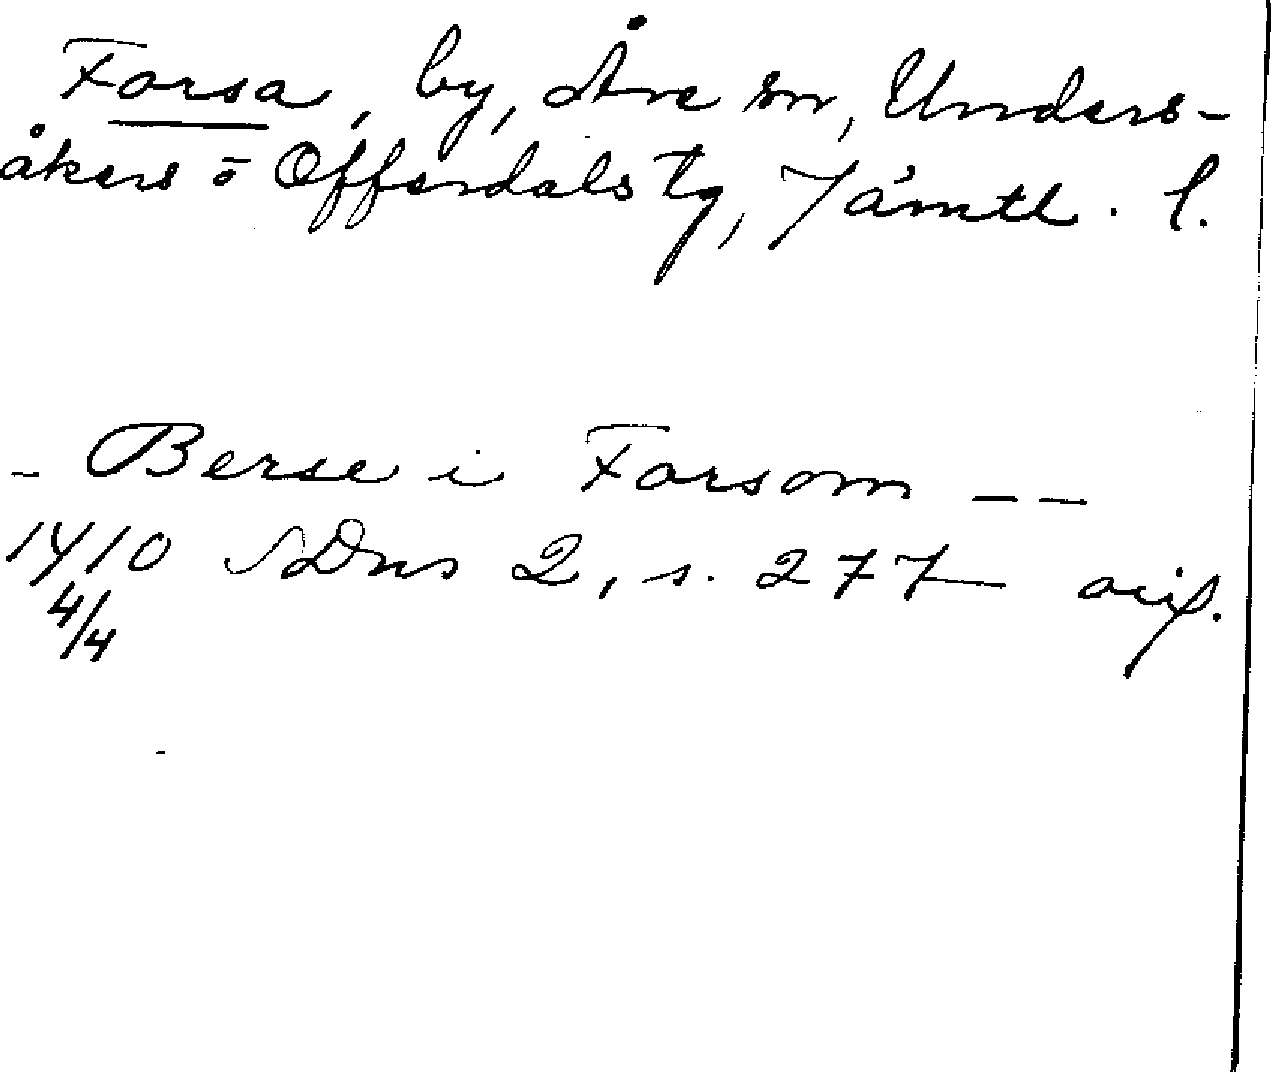 Forsa, by, Åre sn, Unders-
åkers o Offerdals tg, Jämtl. l.
- Berse i Forsom --
1410 SDns 2, s. 277
4/4